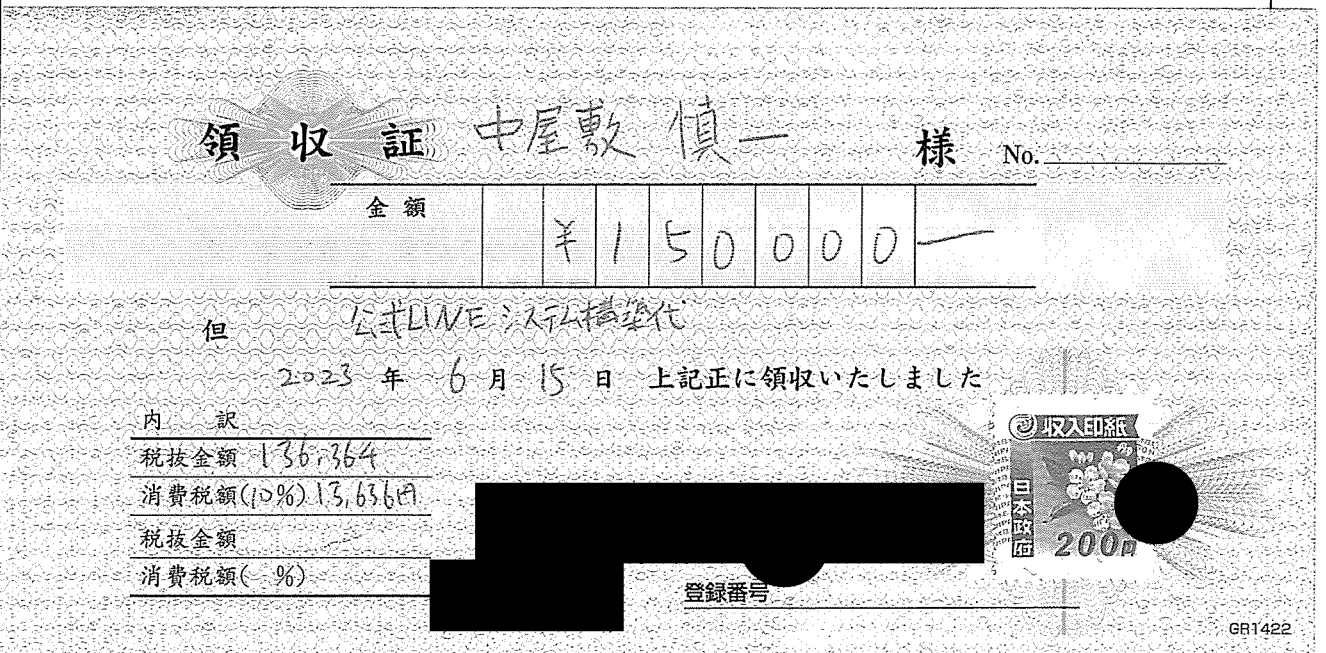 領収証 中屋敷 慎一 様 No.
金額 ¥150000ー
但 公式LINEシステム構築代
2023年 6月 15日 上記正に領収いたしました
内訳
税抜金額 136,364
消費税額(10%) 13,636円
税抜金額
消費税額( %)
収入印紙
日本政府
200円
登録番号
GR1422